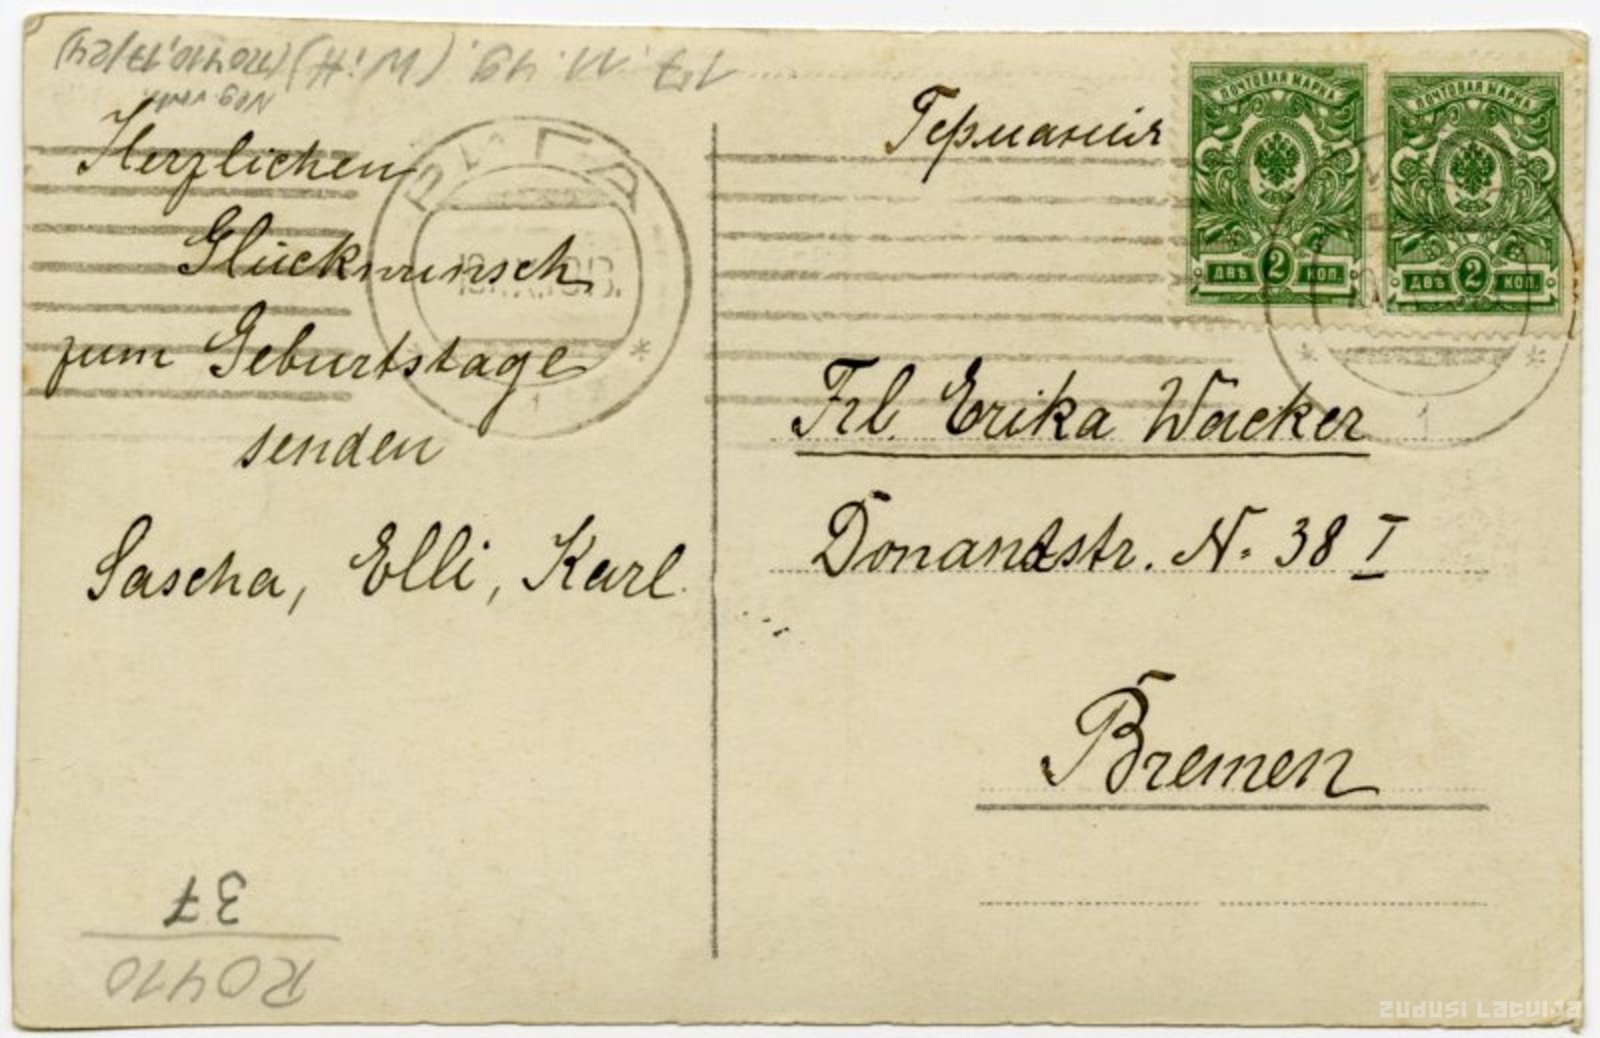 Herzlichen
Glückwunsch
zum Geburtstage
senden
Sascha, Elli, Karl.
РИГА
1
Германія
ПОЧТОВАЯ МАРКА
ДВѢ 2 КОП.
ПОЧТОВАЯ МАРКА
ДВѢ 2 КОП.
1
Frl. Erika Wacker
Donandtstr. N. 38 I
Bremen
17. 11. 49.
37
R0410
zudusi Latvija